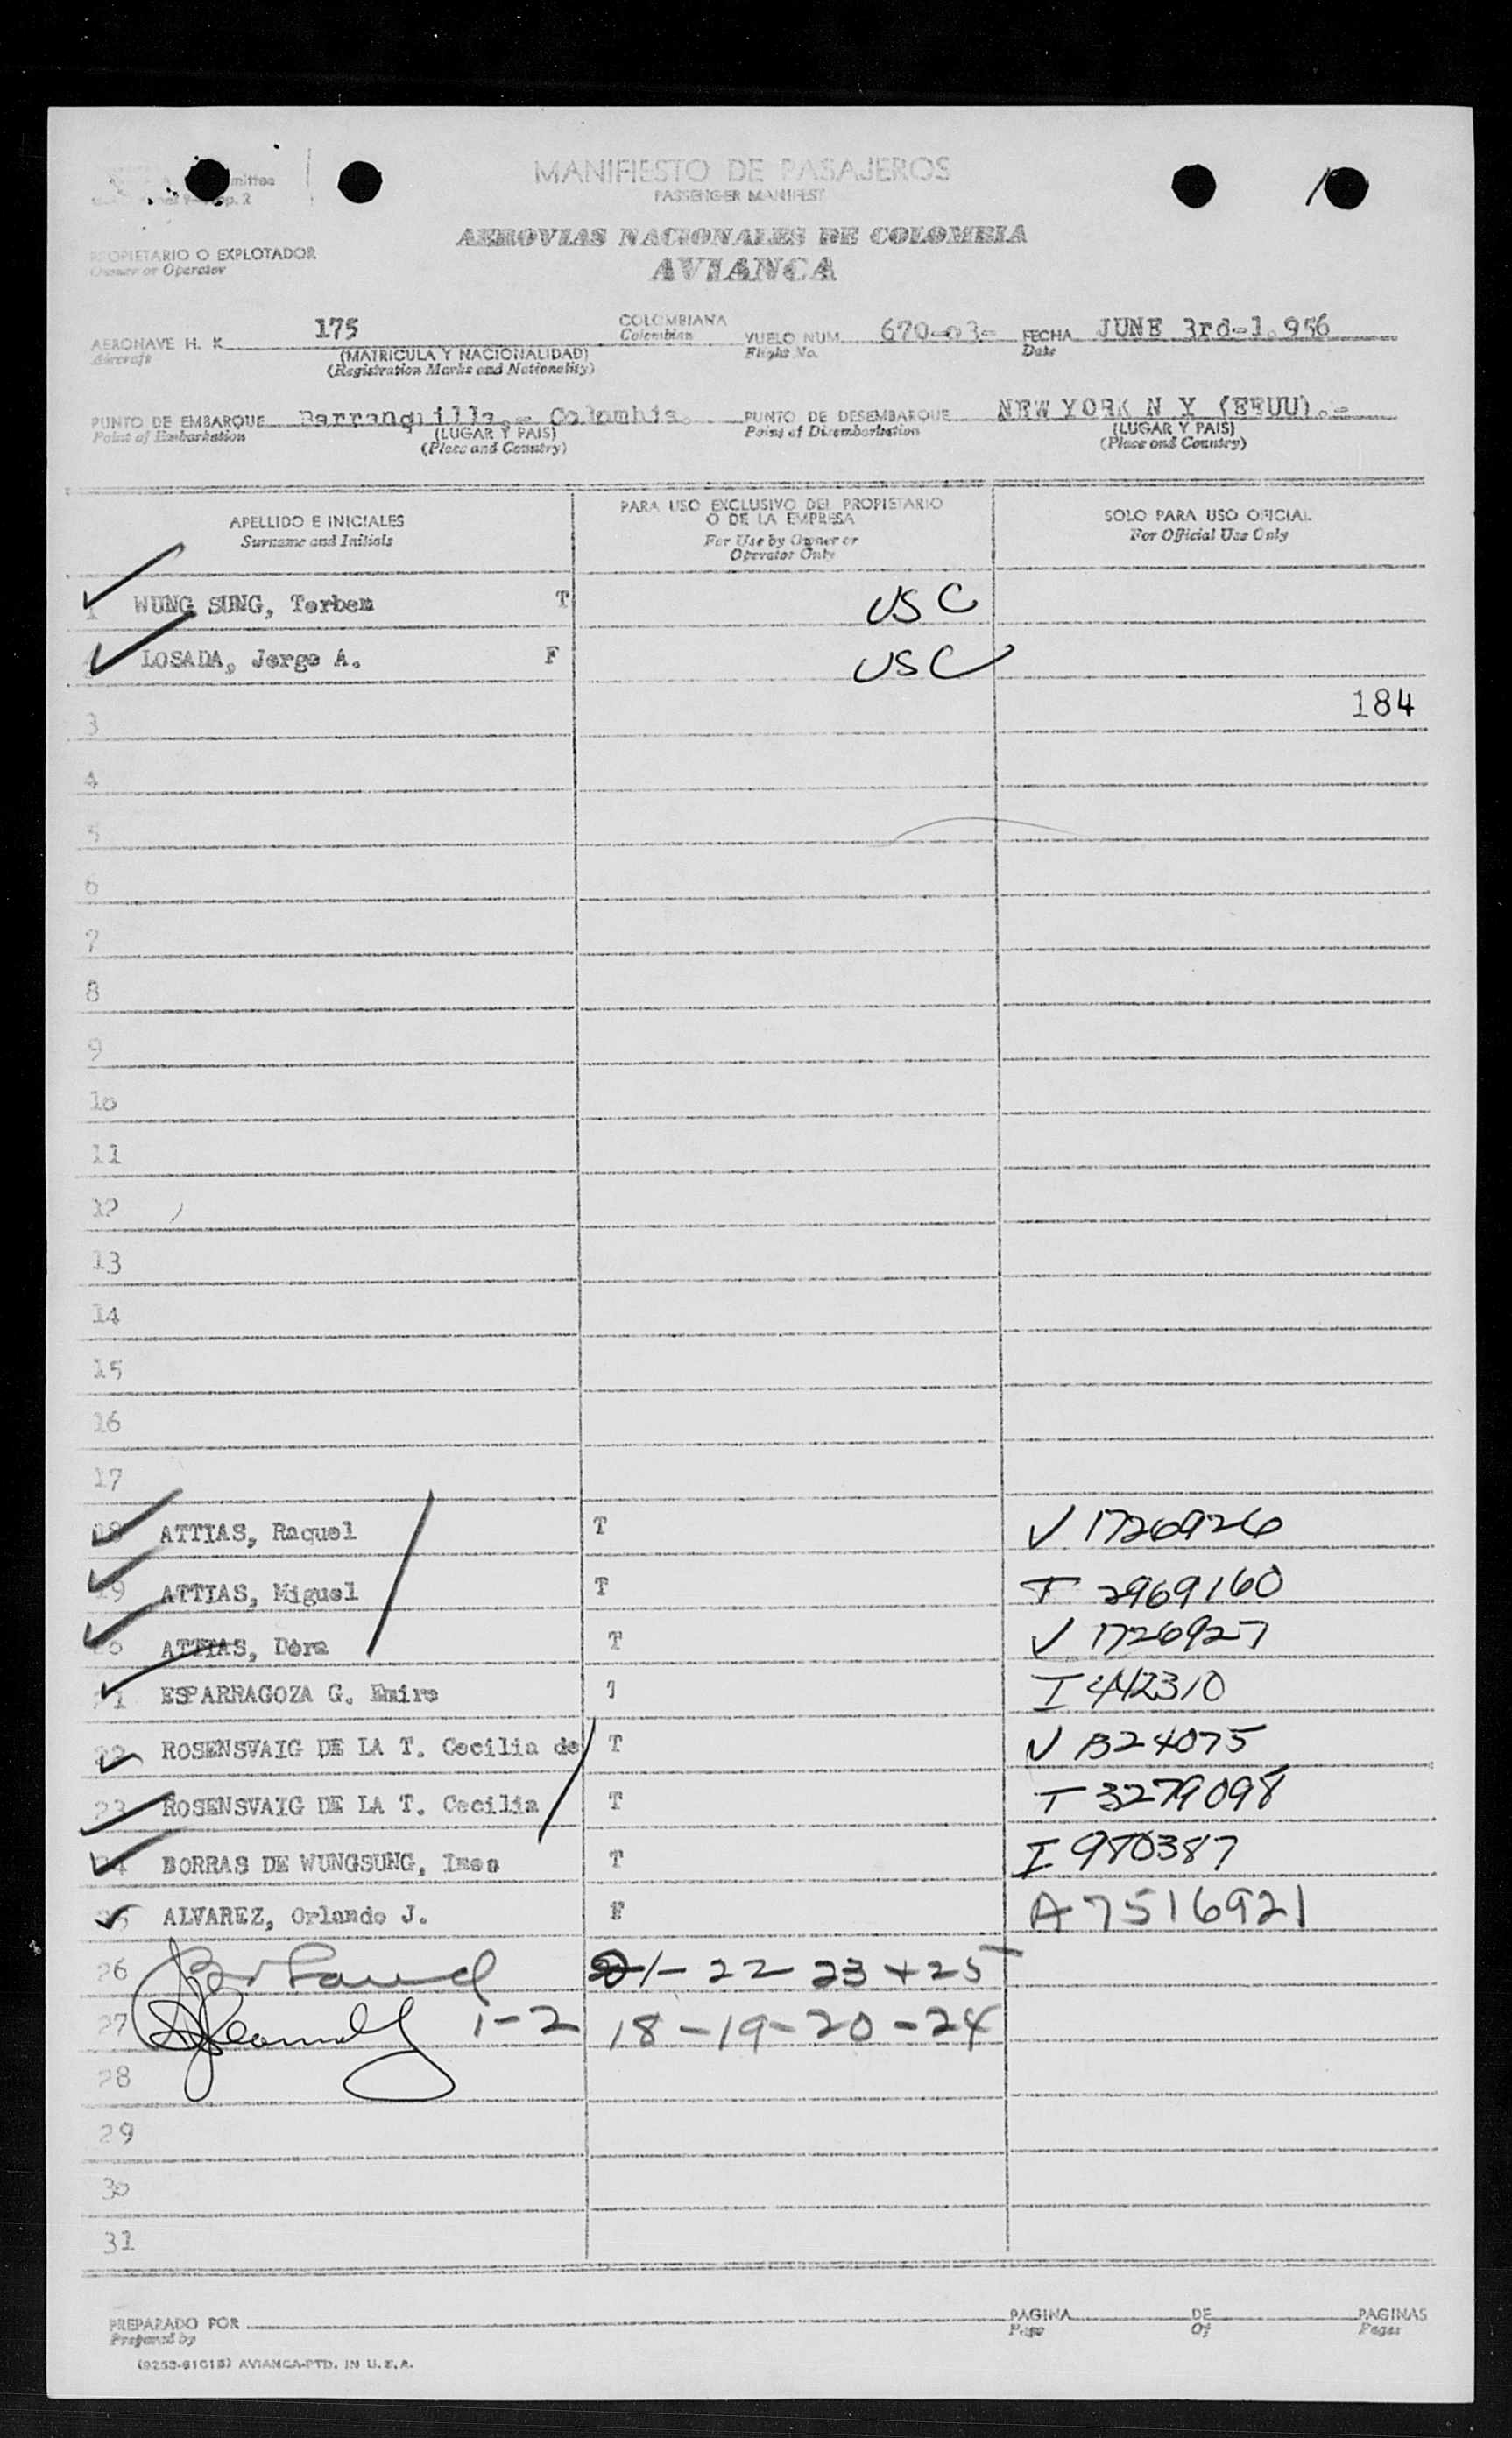 mittee
p. 2
MANIFIESTO DE PASAJEROS
PASSENGER MANIFEST
AEROVIAS NACIONALES DE COLOMBIA
AVIANCA
PROPIETARIO O EXPLOTADOR
Owner or Operator
AERONAVE H. K. 175 COLOMBIANA VUELO NUM. 670-03- FECHA JUNE 3rd-1.956
Aircraft (MATRICULA Y NACIONALIDAD) Colombian Flight No. Date
(Registration Marks and Nationality)
PUNTO DE EMBARQUE Barranquilla.- Colombia. PUNTO DE DESEMBARQUE NEW YORK N Y (EEUU).-
Point of Embarkation (LUGAR Y PAIS) Point of Disembarkation (LUGAR Y PAIS)
(Place and Country) (Place and Country)
APELLIDO E INICIALES PARA USO EXCLUSIVO DEL PROPIETARIO O DE LA EMPRESA SOLO PARA USO OFICIAL
Surname and Initials For Use by Owner or Operator Only For Official Use Only
1 WUNG SUNG, Torben T USC
LOSADA, Jorge A. F USC
3 184
4
5
6
7
8
9
10
11
12
13
14
15
16
17
18 ATTIAS, Raquel T V 1726926
19 ATTIAS, Miguel T T 2969160
20 ATTIAS, Dora T V 1726927
21 ESPARRAGOZA G. Emiro T I 442310
22 ROSENSVAIG DE LA T. Cecilia de T V 1324075
23 ROSENSVAIG DE LA T. Cecilia T T 3279098
24 BORRAS DE WUNGSUNG, Ines T I 980387
25 ALVAREZ, Orlando J. F A7516921
26 21-22 23+25
27 1-2 18-19-20-24
28
29
30
31
PREPARADO POR PAGINA DE PAGINAS
Prepared by Page Of Pages
AVIANCA-PTD. IN U.S.A.